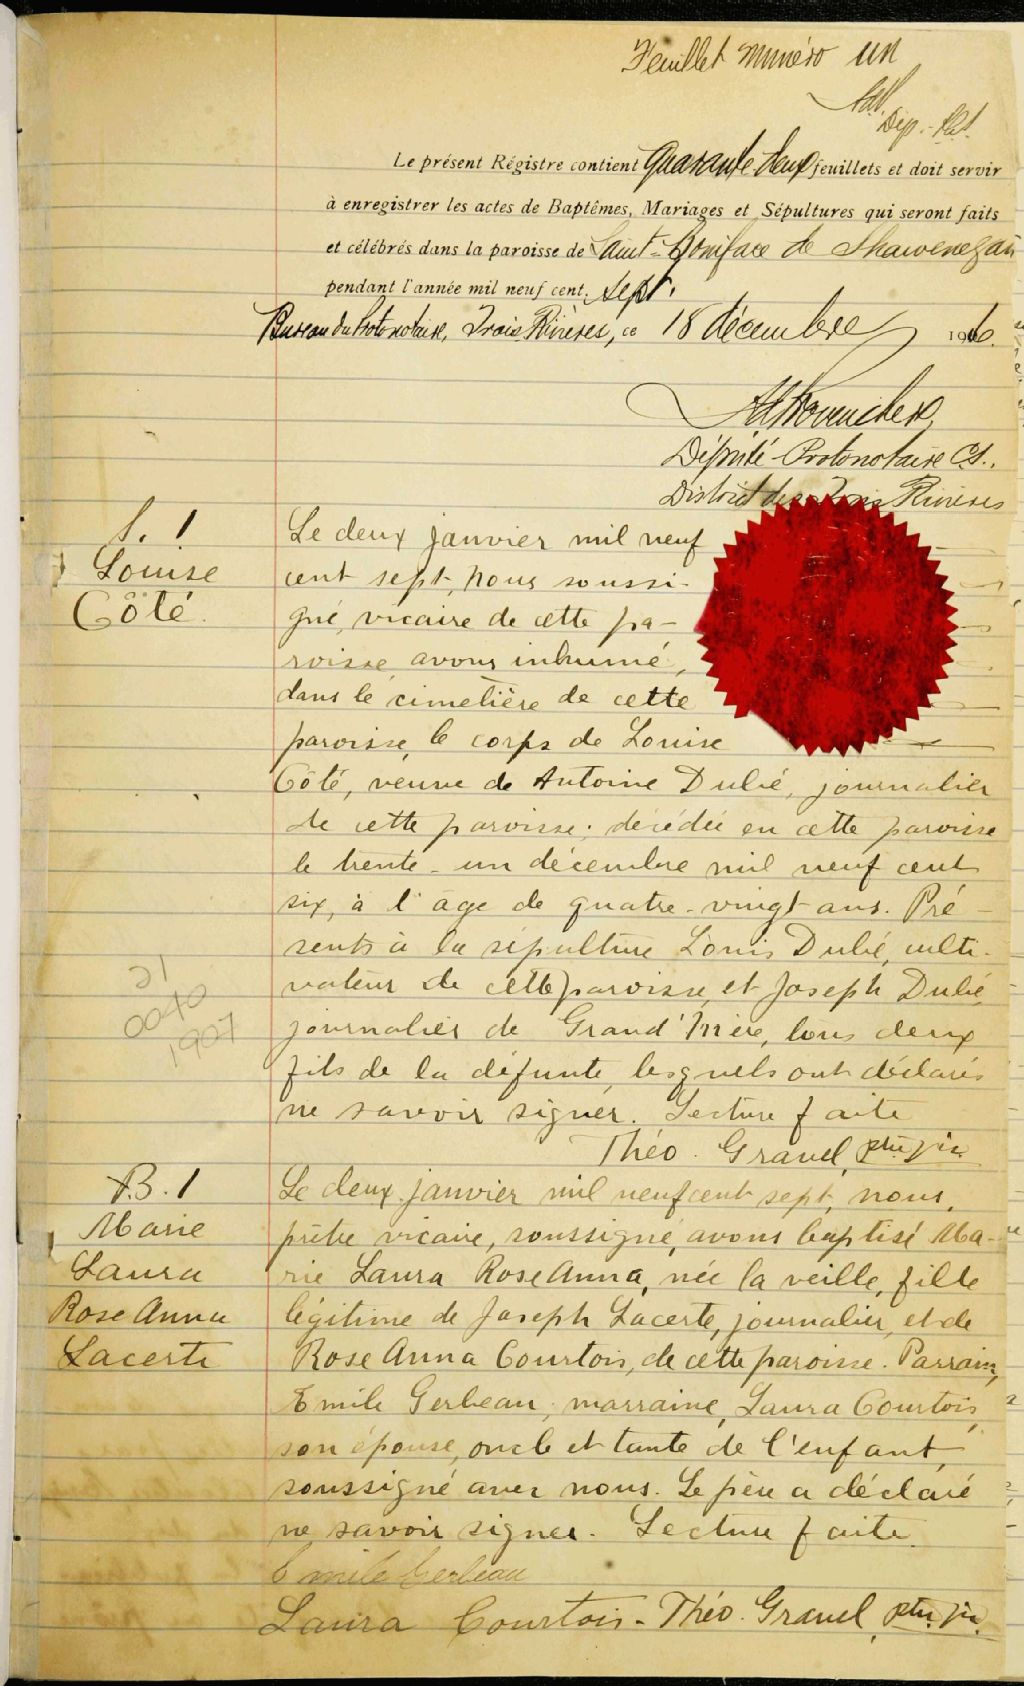 Feuillet numéro un
Dép.-
Le présent Régistre contient Quarante-deux feuillets et doit servir
à enregistrer les actes de Baptêmes, Mariages et Sépultures qui seront faits
et célébrés dans la paroisse de Saint-Boniface de Shawenegan
pendant l'année mil neuf cent. sept.
Bureau du Protonotaire, Trois Rivières, ce 18 décembre 1906.
Député-Protonotaire C.S.,
District des Trois Rivières
S. 1
Louise
Côté.
Le deux janvier mil neuf
cent sept, nous soussi-
gné, vicaire de cette pa-
roisse avons inhumé,
dans le cimetière de cette
paroisse, le corps de Louise
Côté, veuve de Antoine Dubé, journalier
de cette paroisse; décédée en cette paroisse
le trente-un décembre mil neuf cent
six, à l'âge de quatre-vingt ans. Pré-
sents à la sépulture Louis Dubé, culti-
vateur de cette paroisse, et Joseph Dubé,
journalier de Grand'Mère, tous deux
fils de la défunte, lesquels ont déclarés
ne savoir signer. Lecture faite
Théo. Gravel, ptre vic.
21
0040
1907
B. 1
Marie
Laura
Rose Anna
Lacerte
Le deux janvier mil neuf cent sept, nous,
prêtre vicaire, soussigné, avons baptisé Ma-
rie Laura Rose Anna, née la veille, fille
légitime de Joseph Lacerte, journalier, et de
Rose Anna Courtois, de cette paroisse. Parrain,
Emile Gerbeau; marraine, Laura Courtois,
son épouse, oncle et tante de l'enfant,
soussigné avec nous. Le père a déclaré
ne savoir signer. Lecture faite.
Emile Gerbeau
Laura Courtois - Théo. Gravel, ptre vic.